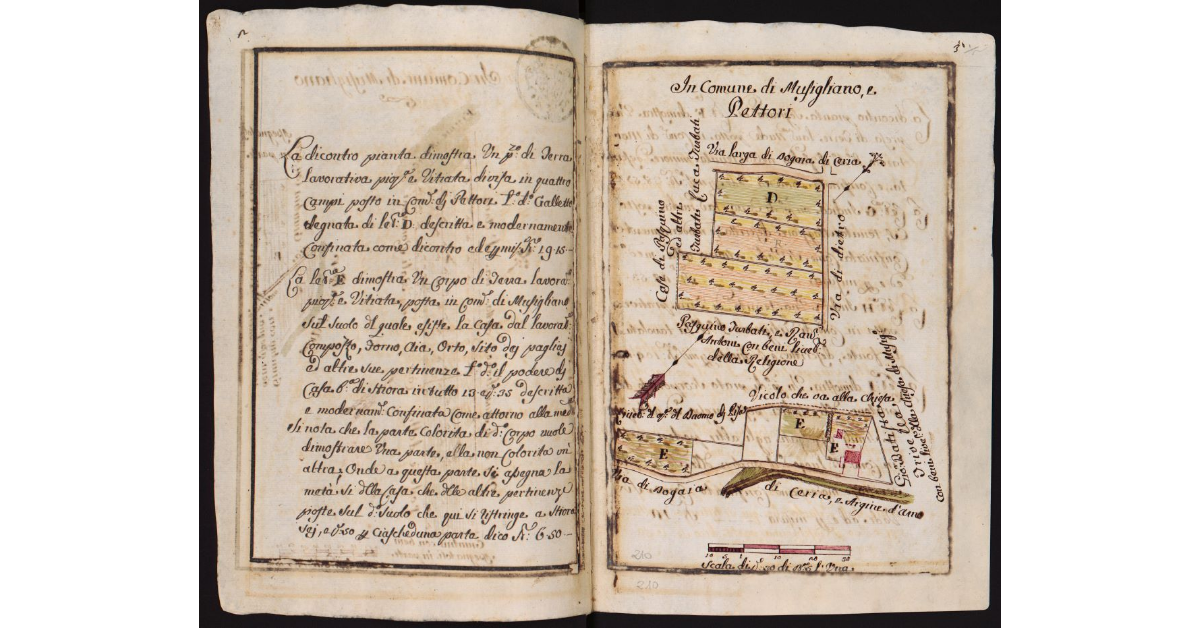 La dicontro pianta dimostra Un p.º di Terra
lavorativa piop.ª e Vitrata divisa in quattro
Campi posto in Com.e di Pettori L.º d.º Galletto
segnata di let.ª D. descritta e modernamente
Confinata come dicontro ed e
19 15
La let.ª E dimostra Un Corpo di Terra lavora.ª
piop.ª e Vitrata, posta in Com.e di Musigliano
sul suolo d'l quale esiste la Casa dal lavorat.e
Composto, Forno, Aia, Orto, sito dei pagliaj
ed altre sue pertinenze L.º d.º il podere di
Casa b.ª di Stiora in tutto 13 35 descritta
e modernam.e Confinata Come attorno alla med.ª
si nota che la parte Colorita di d.º Corpo vuole
dimostrare Una parte, ella non Colorita un'
altra, Onde a questa parte si assegna la
metà sì d'lla Casa che d'lle altre pertinenze
poste sul d.º suolo che qui si ristringe a Stiora
sej, e 50 Ciascheduna parte dico 6 50
In Comune di Musigliano, e
Pettori
Via larga di Bogara di Ceria
Luca Turbati
Case di Pasquino
ed altri
Turbati
D
Via di dietro
Pasquino Turbati, e
Antoni con beni livell.
della Religione
Vicolo che va alla Chiesa
del Duomo di Pisa
E
E
E
Gio: Batista
Orivella
con beni livell. della Chiesa di Musig.º
Via di Bogara
di Ceria, e Argine d'Arno
10 5 1 10 20 30
Scala di
210
210